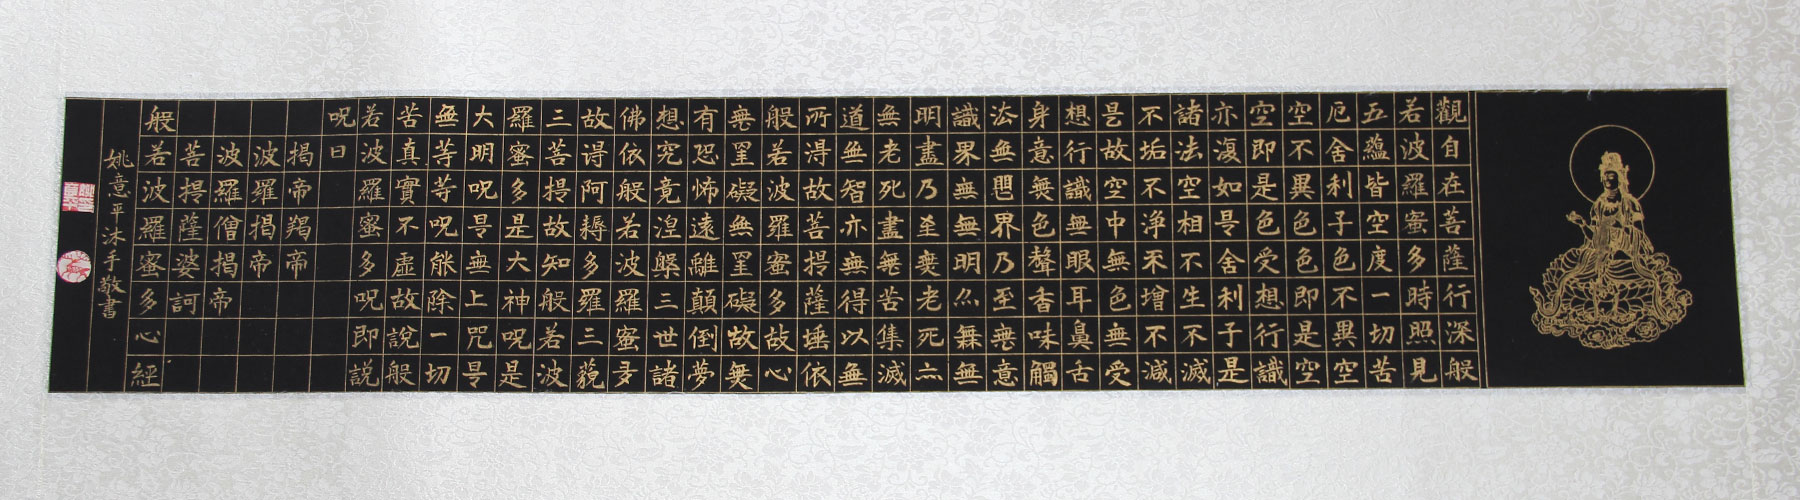 觀自在菩薩行深般
若波羅蜜多時照見
五蘊皆空度一切苦
厄舍利子色不異空
空不異色色即是空
空即是色受想行識
亦復如是舍利子是
諸法空相不生不滅
不垢不淨不增不減
是故空中無色無受
想行識無眼耳鼻舌
身意無色聲香味觸
法無眼界乃至無意
識界無無明亦無無
明盡乃至無老死亦
無老死盡無苦集滅
道無智亦無得以無
所得故菩提薩埵依
般若波羅蜜多故心
無罣礙無罣礙故無
有恐怖遠離顛倒夢
想究竟涅槃三世諸
佛依般若波羅蜜多
故得阿耨多羅三藐
三菩提故知般若波
羅蜜多是大神呪是
大明呪是無上咒是
無等等呪能除一切
苦真實不虛故說般
若波羅蜜多呪即說
呪曰
揭帝羯帝
波羅揭帝
波羅僧揭帝
菩提薩婆訶
般若波羅蜜多心經
姚意平沐手敬書